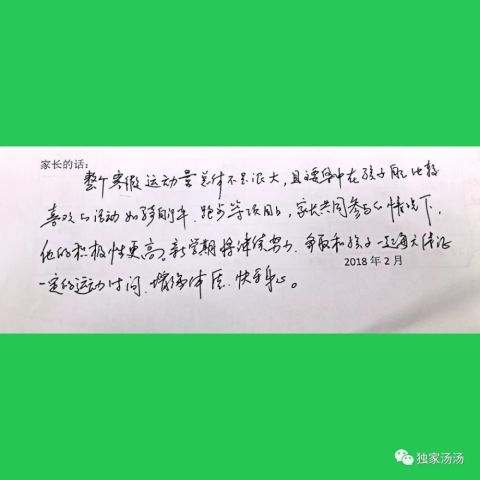 家长的话：
整个寒假运动量总体不是很大，且主要集中在孩子自己比较
喜欢的活动如骑自行车、跑步等项目，家长共同参与的情况下，
他的积极性更高。新学期将继续努力，争取和孩子一起每天保证
2018年2月
一定的运动时间，增强体质，快乐身心。
独家汤汤